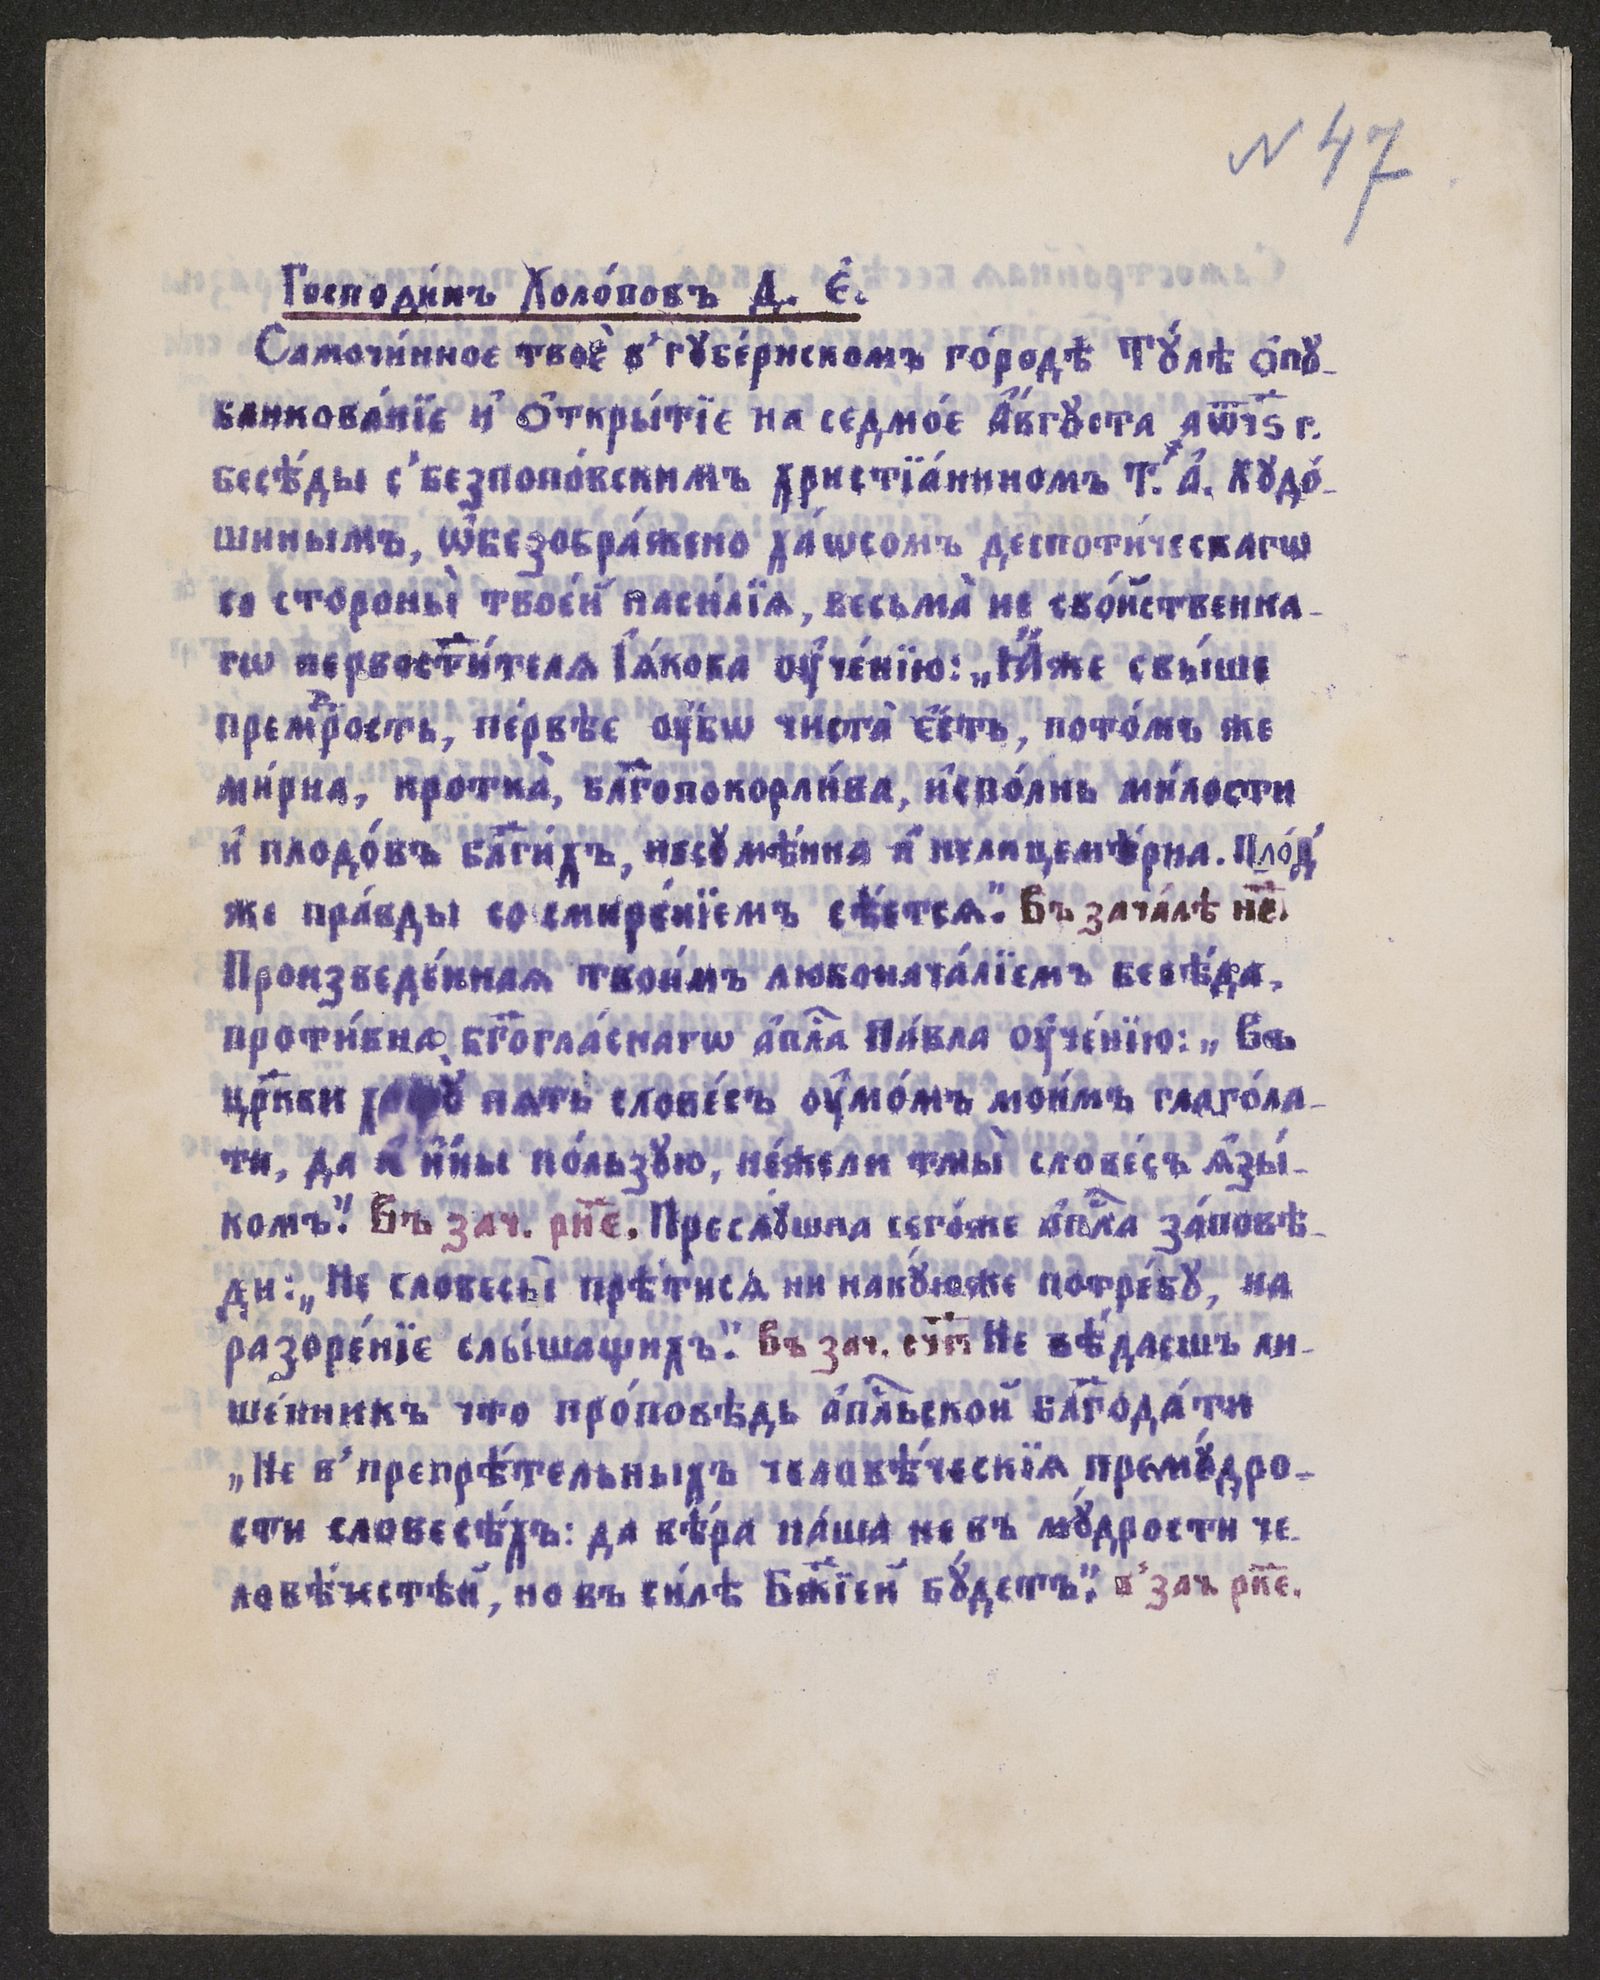 N 47
Господи́нъ Холо́повъ Д. Є҆.
Самочи́нноє твоѐ в̾ гꙋбе́рнскомъ го́родѣ Тꙋ́лѣ ѻ҆пꙋ-
бликова́нїє и҆ ѻ҆ткры́тїє на сєдмо́є А҆́вгꙋста ҂аѿ҃і҃ѕ г.
бєсѣ́ды с̾ бєзпопо́вскимъ христїа́ниномъ Т. А҆. Хꙋдо́-
шинымъ, ѡ҆бєзобра́жєно ха́ѡсомъ дєспоти́чєскагѡ
со стороны̀ твоє́й насилїѧ, вєсьма̀ нє сво́йствєнна-
гѡ пєрвост҃и́тєлѧ І҆а́кова ᲂу҆чє́нїю: „Ꙗ҆́жє свы́шє
прємⷣрость, пе́рвѣє ᲂу҆́бѡ чиста̀ є҆́сть, пото́мъ жє
ми́рна, кротка̀, бл҃гопокорли́ва, и҆спо́лнь ми́лости
и҆ плодо́въ бл҃ги́хъ, нєсꙋмѣ́нна и҆ нєлицємѣ́рна. Пло́д̾
жє пра́вды со смирє́нїємъ сѣ́єтсѧ“. Въ зача́лѣ н҃є.
Произвєдє́ннаѧ твои́мъ любонача́лїємъ бєсѣ́да,
проти́вна бг҃огла́снагѡ а҆пⷭ҇ла Па́вла ᲂу҆чє́нїю: „ Въ
цр҃кви хощꙋ̀ пѧть словє́съ ᲂу҆мо́мъ мои́мъ глаго́ла-
ти, да и҆ и҆́ны по́льзꙋю, нє́жєли тмы̀ словє́съ ѧ҆зы́-
комъ“. Въ зач. рн҃є. Прєслꙋшна сєго́жє а҆пⷭ҇ла за́повѣ-
ди: „Нє словєсы̀ прѣ́тисѧ ни на кꙋ́южє потрє́бꙋ, на
разорє́нїє слы́шащихъ“. Въ зач. сч҃г Нє вѣ́даєшъ ли-
шє́нникъ что про́повѣдь а҆пⷭ҇льской бл҃года́ти
„Нє в̾ прєпрѣ́тєльныхъ чєловѣ́чєскїѧ прємꙋ́дро-
сти словєсѣ́хъ: да вѣ́ра на́ша нє въ мꙋ́дрости чє-
ловѣ́чєстѣй, но въ си́лѣ Бж҃їєй бꙋ́дєтъ“. в̾ зач рк҃є.